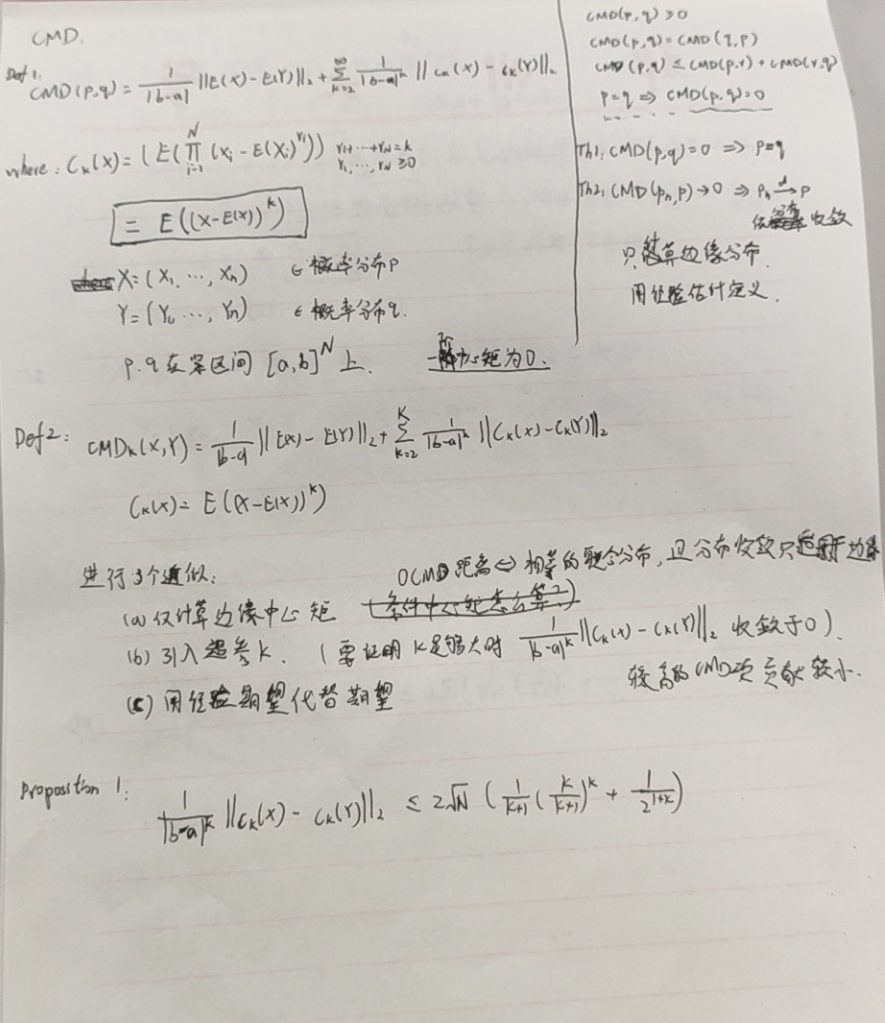 CMD.
Def 1: CMD(p,q) = 1/|b-a| ||E(X) - E(Y)||₂ + ∑_{k=2}^{∞} 1/|b-a|^k || c_k(X) - c_k(Y)||₂
where: C_k(X) = (E(∏_{i=1}^{N} (X_i - E(X_i)^{r_i})) r_1+…+r_N=k r_1,…,r_N≥0
= E((X-E(X))^k)
X=(X₁. …, X_n) ∈ 概率分布p
Y=(Y₁, …, Y_n) ∈ 概率分布q.
p.q在紧区间 [a,b]^N 上. 一阶中心矩为0.
CMD(p,q) ≥0
CMD(p,q)= CMD(q,p)
CMD(p,q) ≤ CMD(p,r) + CMD(r,q)
p=q ⇒ CMD(p,q)=0
Th1: CMD(p,q)=0 ⇒ p=q
Th2: CMD(p_n,p)→0 ⇒ p_n →^d p
依分布收敛
只计算边缘分布.
用经验估计定义.
Def2: CMD_K(X,Y) = 1/|b-a| || E(X) - E(Y)||₂ + ∑_{k=2}^{K} 1/|b-a|^k ||C_k(X)-C_k(Y)||₂
C_k(X)= E((X-E(X))^k)
进行3个近似:
0CMD距离⇔相等的联合分布,且分布收敛只适用于边缘
(a) 仅计算边缘中心矩
(b) 引入超参K. (要证明K足够大时 1/|b-a|^k ||C_k(X) - C_k(Y)||₂ 收敛于0).
较高的CMD项贡献较小.
(c) 用经验期望代替期望
Proposition 1:
1/|b-a|^k ||C_k(X) - C_k(Y)||₂ ≤ 2√N (1/(k+1) (k/(k+1))^k + 1/2^{1+k})